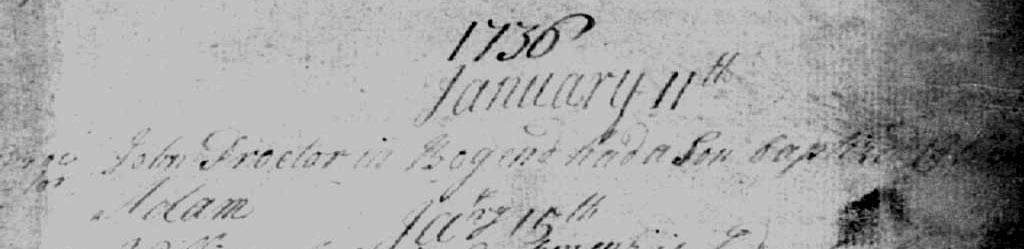 1736
January 11th
John Proctor in Bogend had a Son baptized
Adam
Jary 15th